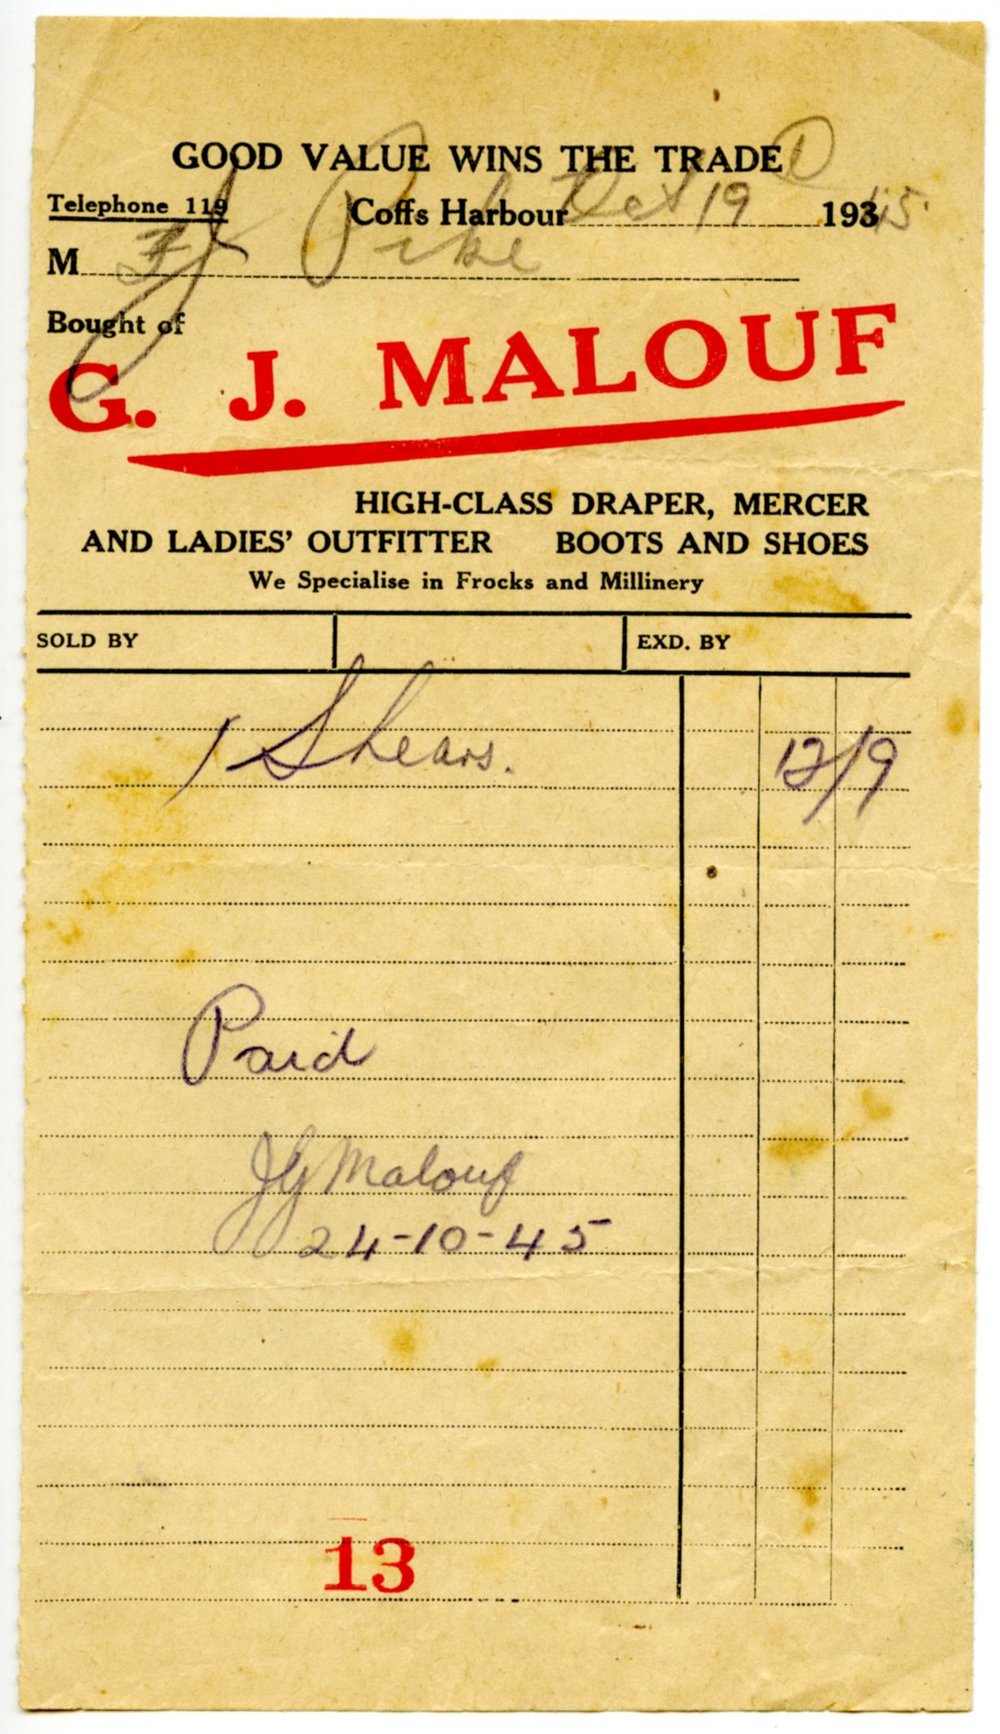 GOOD VALUE WINS THE TRADE
Telephone 119 Coffs Harbour Oct 19 1945
M Pike
Bought of
G. J. MALOUF
HIGH-CLASS DRAPER, MERCER
AND LADIES' OUTFITTER BOOTS AND SHOES
We Specialise in Frocks and Millinery
SOLD BY EXD. BY
1 Shears. 12/9
Paid
JG Malouf
24-10-45
13